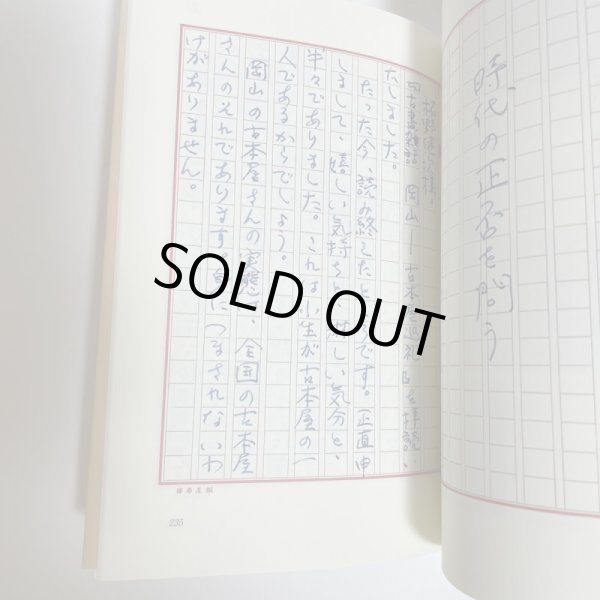 時代の正否を問う
『古書雑話 岡山―古本屋巡礼』を拝読い
たしました。
たった今、読み終えたところです。正直申
しまして、嬉しい気持ちと、悲しい気分と、
半々でありました。これは小生が古本屋の一
人であるからでしょう。
岡山の古本屋さんの実態は、全国の古本屋
さんのそれであります。身につまされないわ
けがありません。
235
SOLD OUT